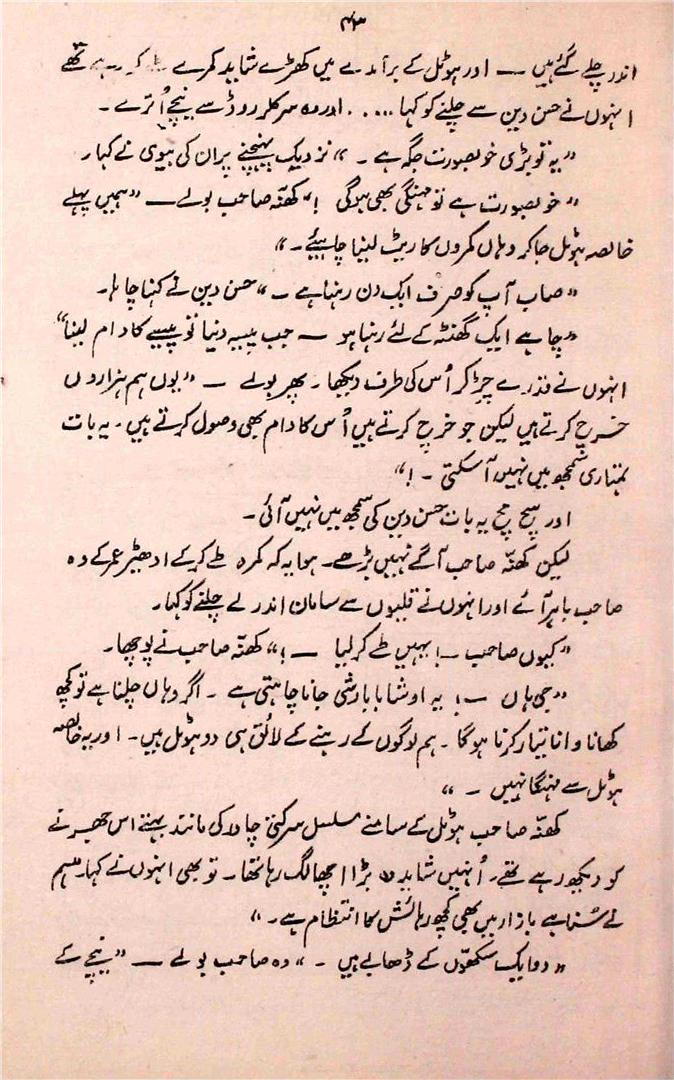 ۴۳
اندر چلے گئے ہیں ـــ اور ہوٹل کے برآمدے میں کھڑے شاید کمرے طے کر رہے تھے
انہوں نے حسن دین سے چلنے کو کہا ..... اور وہ سرکلر روڈ سے نیچے اُترے ۔
”یہ تو بڑی خوبصورت جگہ ہے ۔“ نزدیک پہنچنے پر ان کی بیوی نے کہا ۔
”خوبصورت ہے تو مہنگی بھی ہوگی !“ کھنّہ صاحب بولے ـــ ”ہمیں پہلے
خالصہ ہوٹل جا کر وہاں کمروں کا ریٹ لینا چاہیئے ۔“
”صاب آپ کو صرف ایک دن رہنا ہے ۔“ حسن دین نے کہنا چاہا ۔
”چاہے ایک گھنٹہ کے لئے رہنا ہو ـــ جب پیسہ دینا تو پیسے کا دام لینا“
انہوں نے قدرے چڑ کر اُس کی طرف دیکھا ۔ پھر بولے ـــ ”یوں ہم ہزاروں
خرچ کرتے ہیں لیکن جو خرچ کرتے ہیں اُس کا دام بھی وصول کرتے ہیں ۔ یہ بات
تمہاری سمجھ میں نہیں آ سکتی ۔ !“
اور سچ مچ یہ بات حسن دین کی سمجھ میں نہیں آئی ۔
لیکن کھنّہ صاحب آگے نہیں بڑھے ۔ ہوا یہ کہ کمرہ طے کر کے ادھیڑ عمر کے وہ
صاحب باہر آئے اور انہوں نے قلیوں سے سامان اندر لے چلنے کو کہا ۔
”کیوں صاحب ـــ ! یہیں طے کر لیا ـــ !“ کھنّہ صاحب نے پوچھا ۔
”جی ہاں ـــ ! یہ اوشا بابارشی جانا چاہتی ہے ۔ اگر وہاں چلنا ہے تو کچھ
کھانا وانا تیار کرنا ہوگا ۔ ہم لوگوں کے رہنے کے لائق ہی دو ہوٹل ہیں ۔ اور یہ خالصہ
ہوٹل سے مہنگا نہیں ۔“
کھنّہ صاحب ہوٹل کے سامنے مسلسل سرکتی چادر کی مانند بہتے اس جھرنے
کو دیکھ رہے تھے ۔ اُنہیں شاید وہ بڑا اچھا لگ رہا تھا ۔ تو بھی انہوں نے کہا ۔ ہم
نے سُنا ہے بازار میں بھی کچھ رہائش کا انتظام ہے ۔“
”دو ایک سکھوں کے ڈھابے ہیں ۔“ وہ صاحب بولے ـــ ”نیچے کے